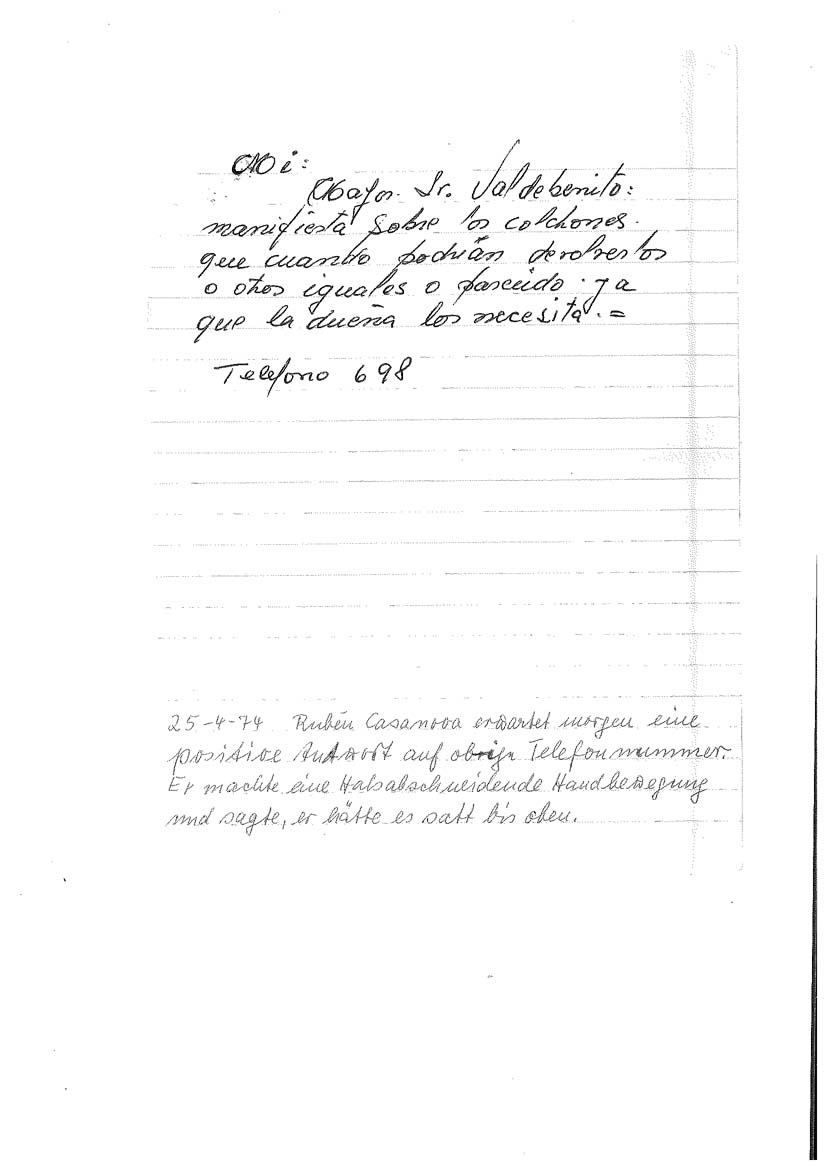 Mi:
Mayor. Sr. Valdebenito:
manifiesta sobre los colchones.
que cuanto podrían devolverlos
o otros iguales o parecido. ya
que la dueña los necesita. =
Telefono 698
25-4-74 Rubén Casanova erwartet morgen eine
positive Antwort auf obrige Telefonnummer.
Er machte eine Halsabschneidende Handbewegung
und sagte, er hätte es satt bis oben.